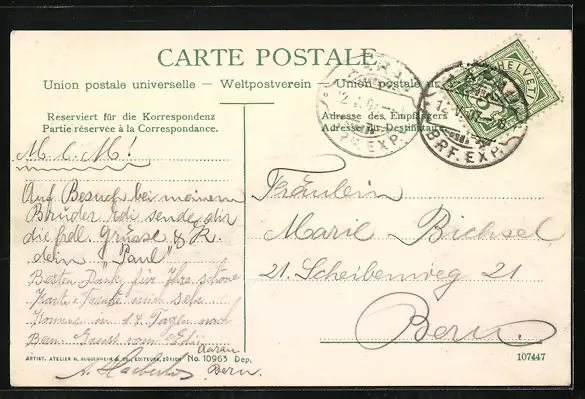 CARTE POSTALE
Union postale universelle – Weltpostverein – Union postale
Reserviert für die Korrespondenz
Partie réservée à la Correspondance.
Adresse des Empfängers
Adresse du Destinataire
HELVETIA
AARAU
12. V. 07
BRF. EXP.
AARAU
12. V. 07
BRF. EXP.
M. l. M!
Auf Besuch bei meinem
Bruder sende dir
die frdl. Grüsse & K.
dein "Paul"
Besten Dank für Ihre schöne
Karte. Freute mich sehr
Komme in 14 Tagen nach
Bern Gruss vom
Aarau
Bern.
Fräulein
Marie Bichsel
21. Scheibenweg 21
Bern.
ARTIST. ATELIER H. GUGGENHEIM & CO., EDITEURS, ZÜRICH No. 10963 Dep.
107447